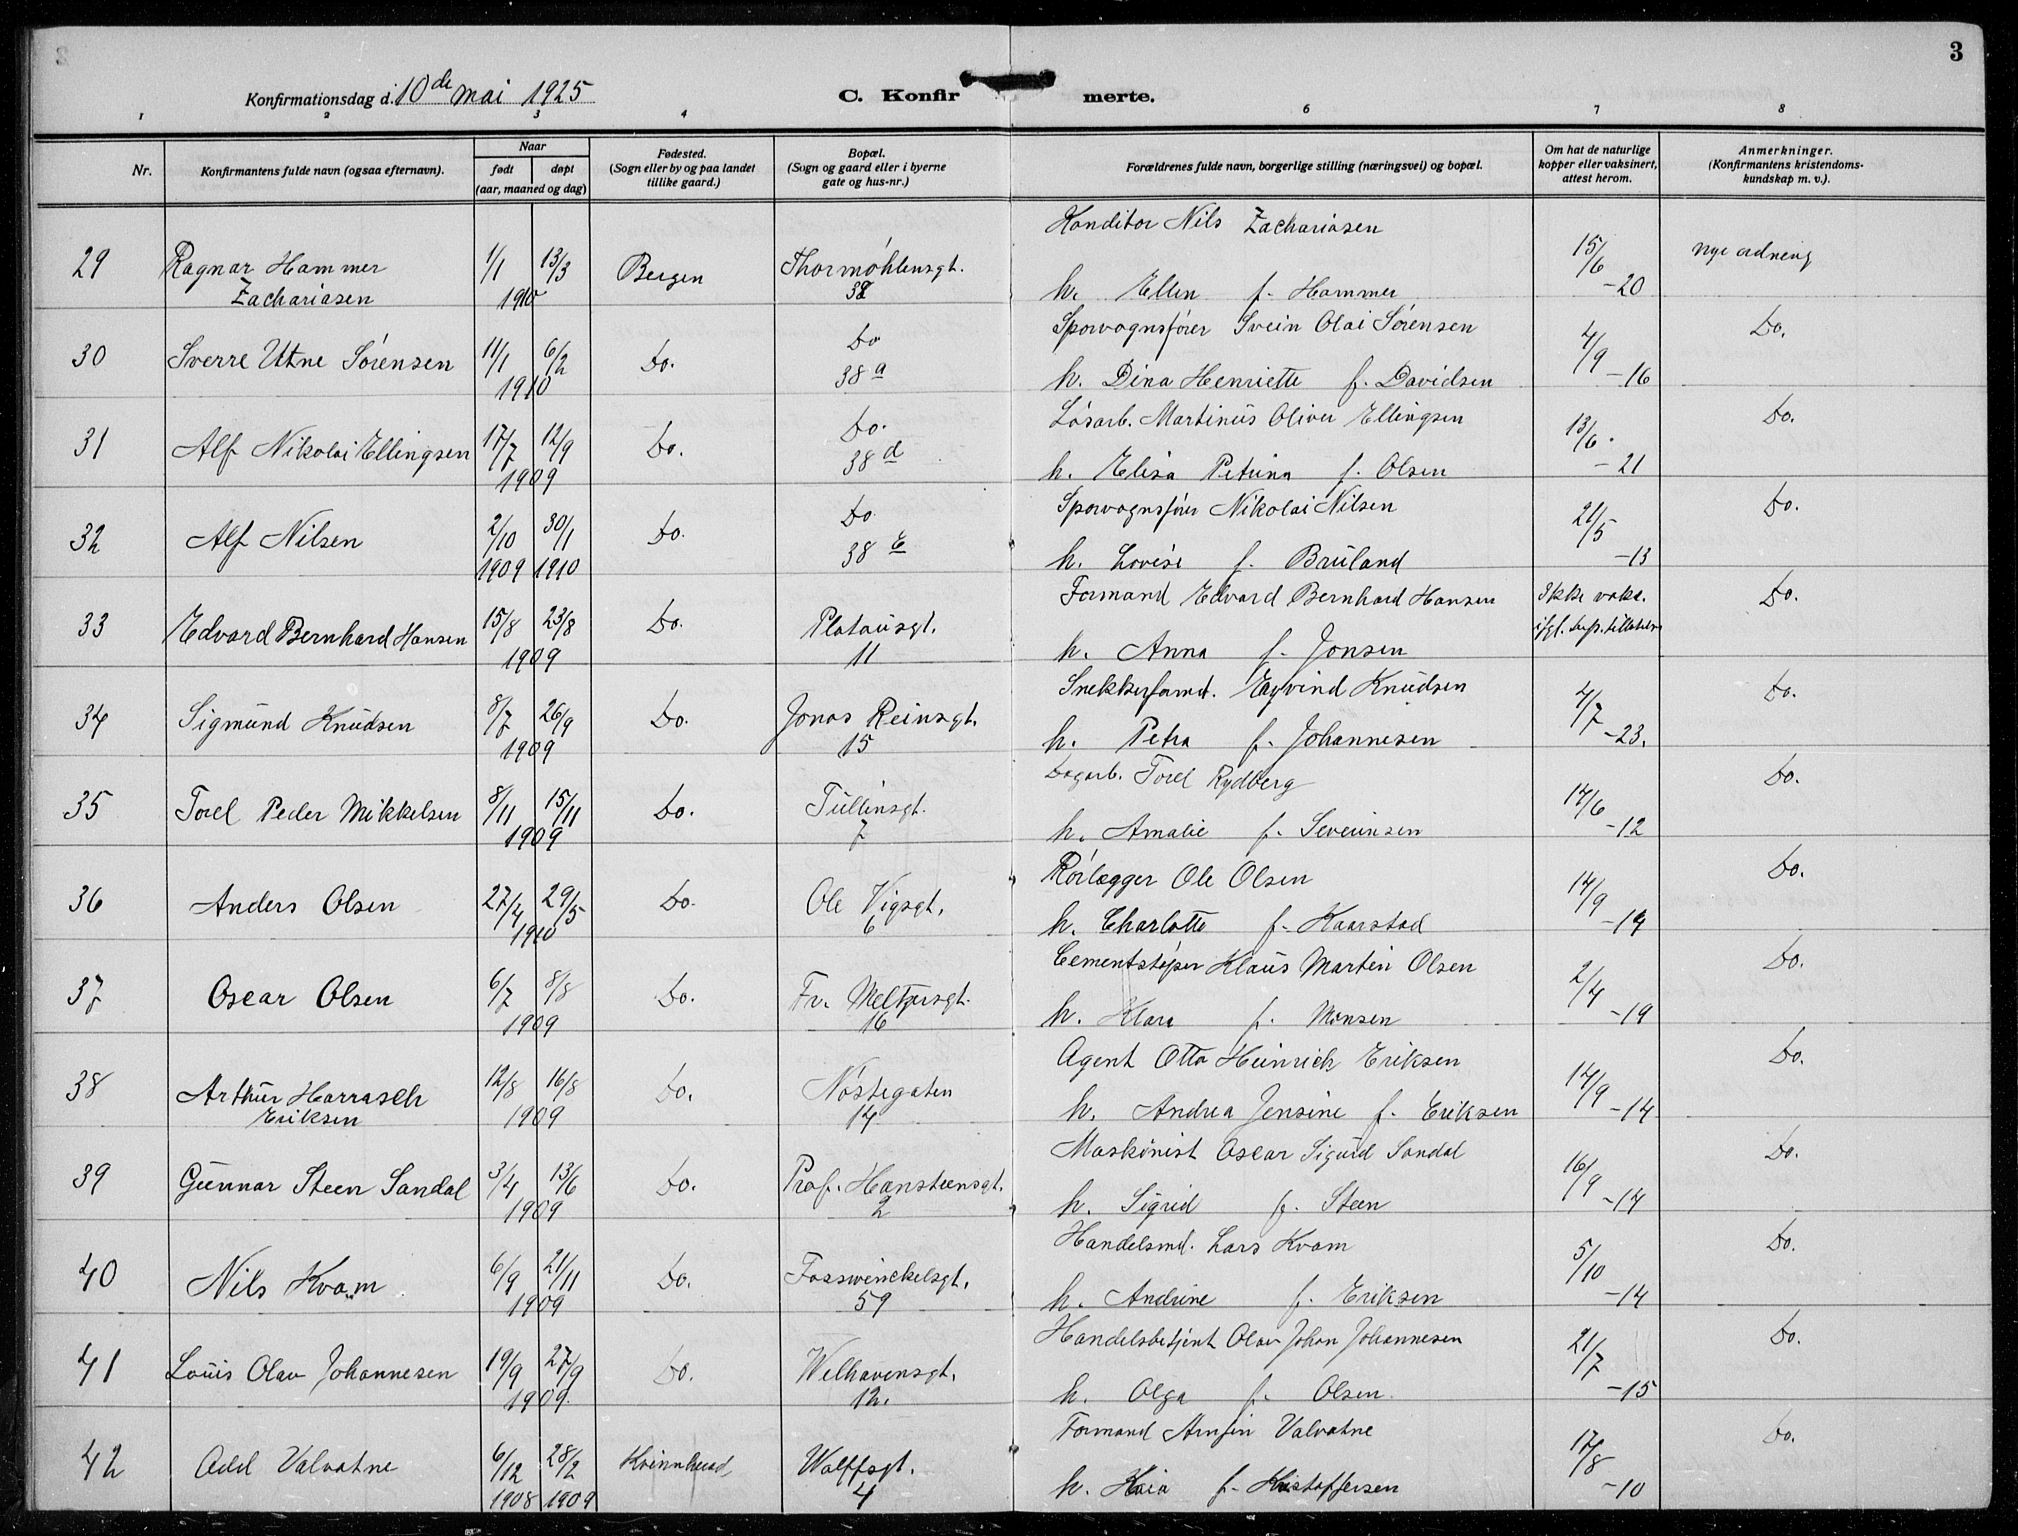 3
Konfirmationsdag d. 10de mai 1925
C. Konfirmerte.
1 2 3 4 6 7 8
Nr.
Konfirmantens fulde navn (ogsaa efternavn).
Naar
født døpt
(aar, maaned og dag)
Fødested.
(Sogn eller by og paa landet
tillike gaard.)
Bopæl.
(Sogn og gaard eller i byerne
gate og hus-nr.)
Forældrenes fulde navn, borgerlige stilling (næringsvei) og bopæl.
Om hat de naturlige
kopper eller vaksinert,
attest herom.
Anmerkninger.
(Konfirmantens kristendoms-
kundskap m. v.).
29 Ragnar Hammer 1/1 13/3 Bergen Thormøhlensgt. Konditor Nils Zachariasen 15/6 nye ordning
Zachariasen 1910 38 h. Ellen f. Hammer -20
30 Sverre Utne Sørensen 11/1 6/2 Do. Do Sporvognsfører Svein Olai Sørensen 4/9 Do.
1910 38 a h. Dina Henriette f. Davidsen -16
31 Alf Nikolai Ellingsen 17/7 12/9 Do. Do. Løsarb. Martinus Oliver Ellingsen 13/6. Do.
1909 38 d h. Elisa Petrina f. Olsen -21
32 Alf Nilsen 2/10 30/1 Do. Do. Sporvognsfører Nikolai Nilsen 21/5 Do.
1909 1910 38 E h. Lovise f. Bruland -13
33 Edvard Bernhard Hansen 15/8 23/8 Do. Platousgt. Formand Edvard Bernhard Hansen Ikke vaks. Do.
1909 11 h. Anna f. Jonsen ifgl.
34 Sigmund Knudsen 8/7 26/9 Do. Jonas Reinsgt. Snekkerformd. Eyvind Knudsen 4/7 Do.
1909 15 h. Petra f. Johannesen -23.
35 Torel Peder Mikkelsen 8/11 15/11 Do. Tullinsgt. Dagarb. Torel Rydberg 14/6 Do.
1909 7 h. Amalie f. Severinsen -12
36 Anders Olsen 27/4 29/5 Do. Ole Vigsgt. Rørlægger Ole Olsen 14/9 Do.
1910 6 h. Charlotte f. Kaarstad -14
37 Oscar Olsen 6/7 8/8 Do. Fr. Meltzersgt. Cementstøper Klaus Martin Olsen 2/4 Do.
1909 16 h. Klara f. Monsen -19
38 Arthur Harrasch 12/8 16/8 Do. Nøstegaten Agent Otto Heinrich Eriksen 14/9 Do.
Eriksen 1909 14 h. Andrea Jensine f. Eriksen -14
39 Gunnar Steen Sandal 3/4 13/6 Do. Prof. Hansteensgt. Maskinist Oscar Sigurd Sandal 16/9 Do.
1909 2 h. Sigrid f. Steen -14
40 Nils Kvam 6/9 21/11 Do. Fosswinckelsgt. Handelsmd. Lars Kvam 5/10 Do.
1909 59 h. Andrine f. Eriksen -14
41 Louis Olav Johannesen 19/9 27/9 Do. Welhavensgt. Handelsbetjent Olav Johan Johannesen 21/7 Do.
1909. 12. h. Olga f. Olsen. -15
42 Odd Valvatne 6/12 28/2 Kvinnherad Wolffsgt. Formand Arnfin Valvatne 17/8 Do.
1908 1909 4 h. Kaia f. Kristoffersen -10